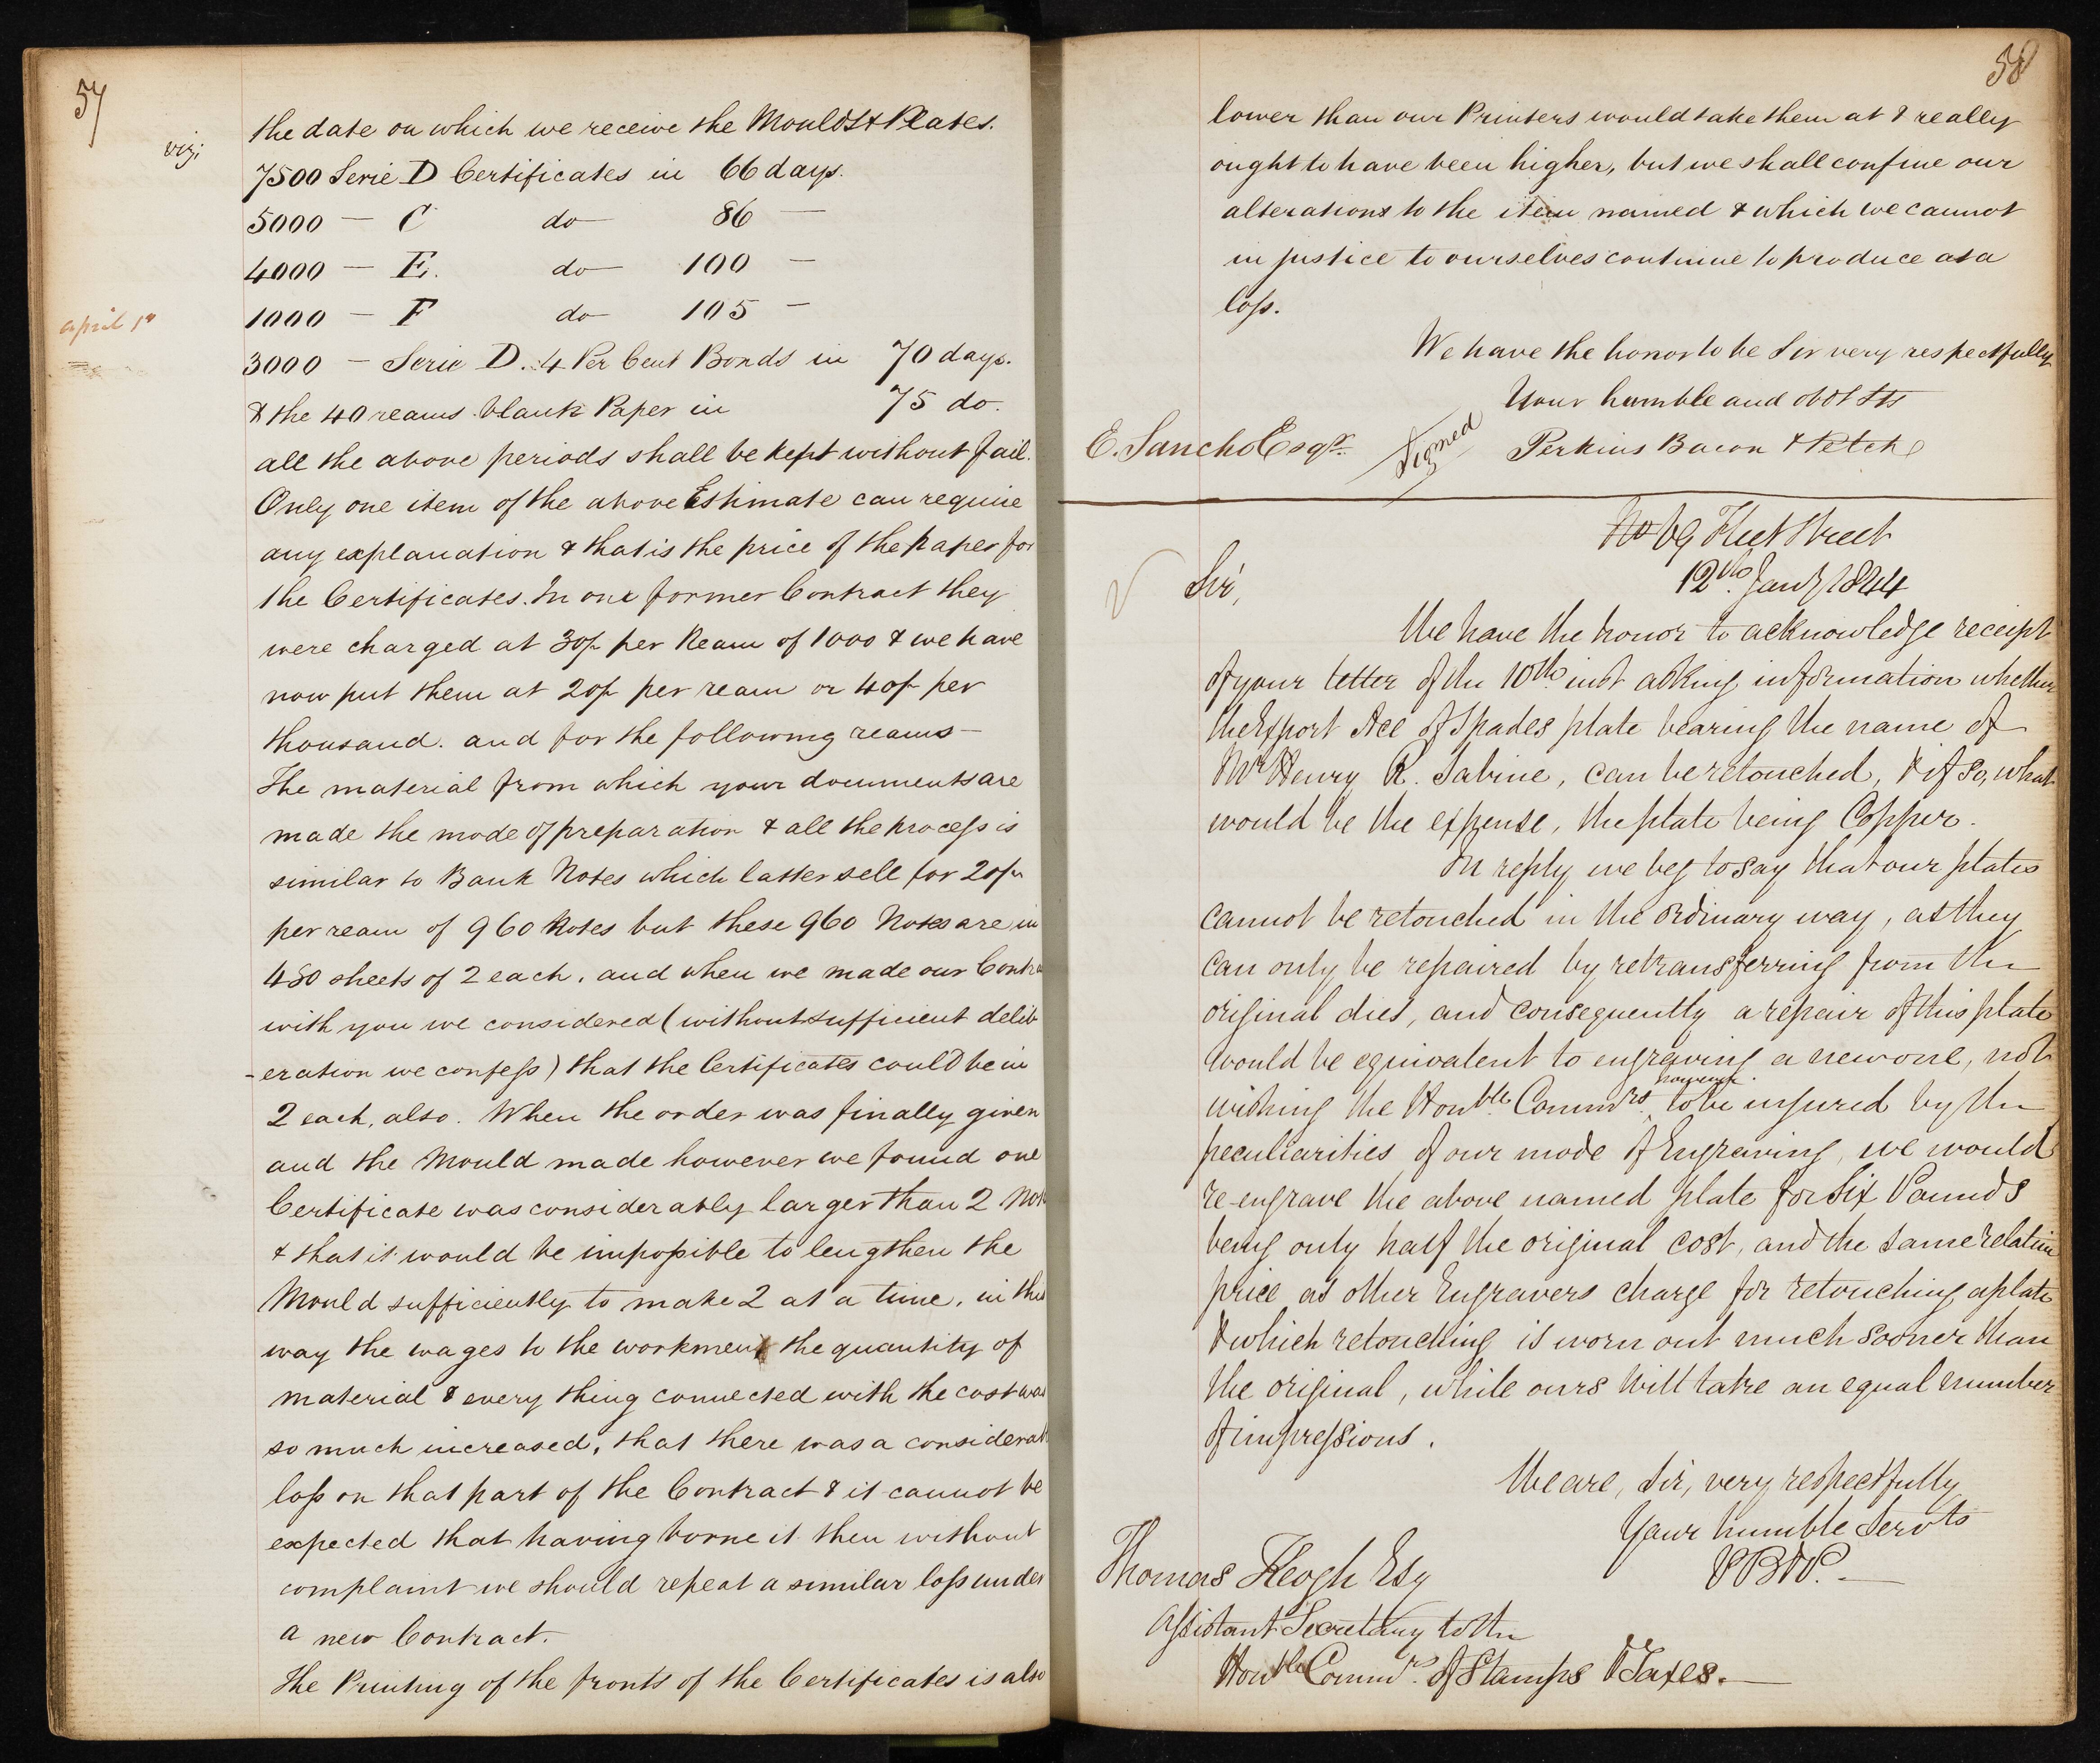 57
the date on which we receive the Moulds & Plates.
viz;
7500 Serie D Certificates in 66 days.
5000 — C do — 86 —
4000 — E. do — 100 —
april 1st
1000 — F do — 105 —
3000 — Serie D. 4 Per Cent Bonds in 70 days.
& the 40 reams blank Paper in 75 do.
all the above periods shall be kept without fail.
Only one item of the above Estimate can require
any explanation & that is the price of the paper for
the Certificates. In one former Contract they
were charged at 30/- per Ream of 1000 & we have
now put them at 20/- per ream or 40/- per
thousand. and for the following reams —
The material from which your documents are
made the mode of preparation & all the process is
similar to Bank Notes which latter sell for 20/-
per ream of 960 Notes but these 960 Notes are in
480 sheets of 2 each. and when we made our Contra
with you we considered (without sufficient delib
-eration we confess) that the Certificates could be in
2 each, also. When the order was finally given
and the Mould made however we found one
Certificate was considerably larger than 2 Not
& that it would be impossible to lengthen the
Mould sufficiently to make 2 at a time. in this
way the wages to the workmen & the quantity of
material & every thing connected with the cost was
so much increased, that there was a considerab
loss on that part of the Contract & it cannot be
expected that having borne it then without
complaint we should repeat a similar loss under
a new Contract.
The Printing of the fronts of the Certificates is also
58
lower than our Printers would take them at & really
ought to have been higher, but we shall confine our
alterations to the item named & which we cannot
in justice to ourselves continue to produce at a
loss.
We have the honor to be Sir very respectfully
Your humble and obdt Sts
E. Sancho Esqr. Signed Perkins Bacon & Petch
No 69 Fleet Street
12th. Jany 1844
Sir,
We have the honor to acknowledge receipt
of your letter of the 10th. inst asking information whether
the Export Ace of Spades plate bearing the name of
Mr Henry R. Sabine, can be retouched, & if so, what
would be the expense, the plate being Copper.
In reply we beg to say that our plates
cannot be retouched in the ordinary way, as they
can only be repaired by retransferring from the
original dies, and consequently a repair of this plate
would be equivalent to engraving a new one, not
however
wishing the Honble Commrs. to be injured by the
peculiarities of our mode of Engraving, we would
re-engrave the above named plate for Six Pounds
being only half the original cost, and the same relative
price as other Engravers charge for retouching a plate
& which retouching is worn out much sooner than
the original, while ours will take an equal number
of impressions.
We are, Sir, very respectfully
Your humble Servts
P B & P. —
Thomas Keogh Esq
Assistant Secretary to the
Honble Commrs. of Stamps & Taxes. —